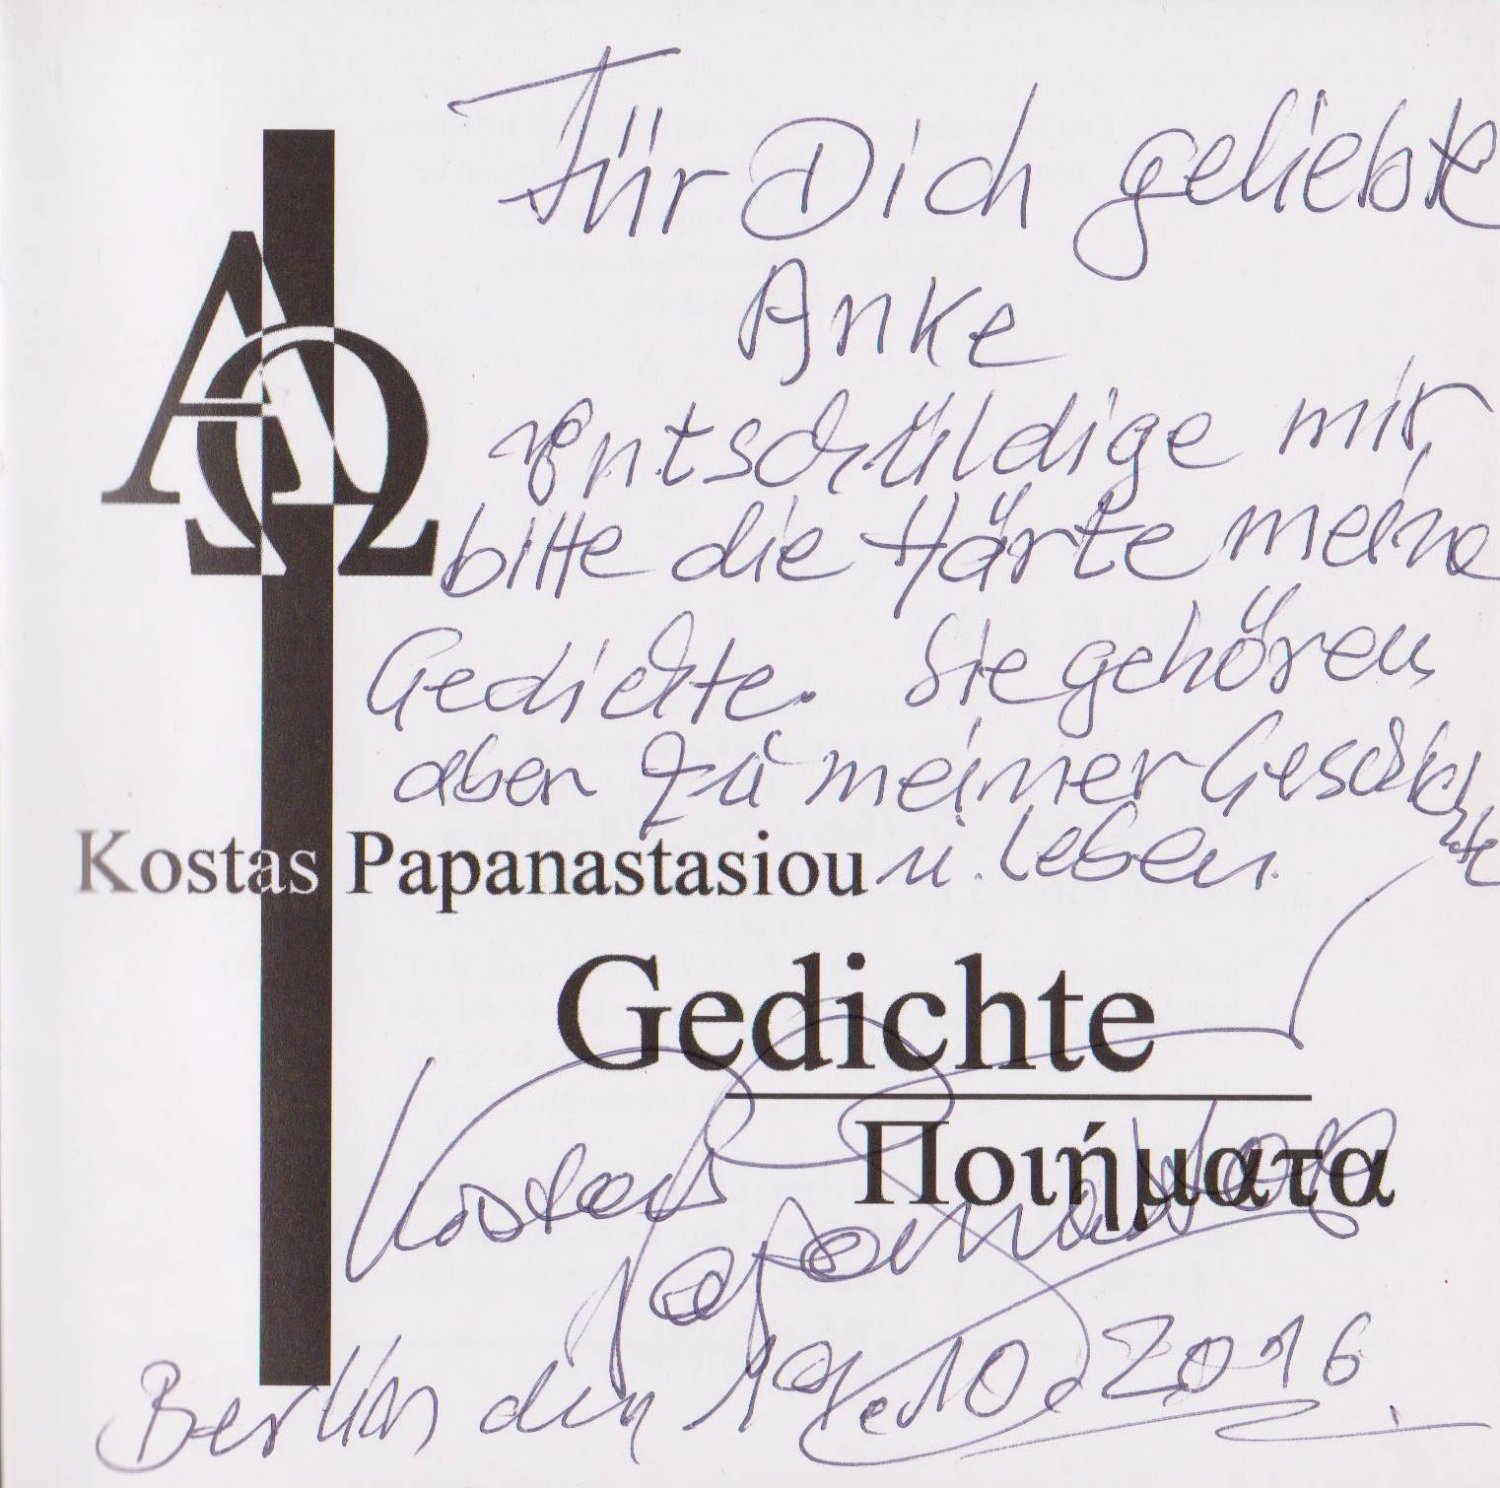 Für Dich geliebte
Anke
entschüldige mir
bitte die Härte meine
Gedichte. Sie gehören
aber zu meiner Geschichte
u. Leben.
ΑΩ
Kostas Papanastasiou
Gedichte
Ποιήματα
Kostas
Papanastasiou
Berlin den 10. 2016